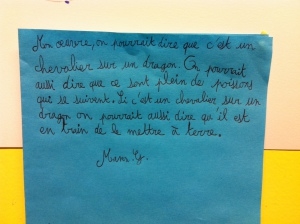 Mon œuvre, on pourrait dire que c'est un
chevalier sur un dragon. On pourrait
aussi dire que ce sont plein de poissons
qui se suivent. Si c'est un chevalier sur un
dragon on pourrait aussi dire qu'il est
en train de le mettre à terre.